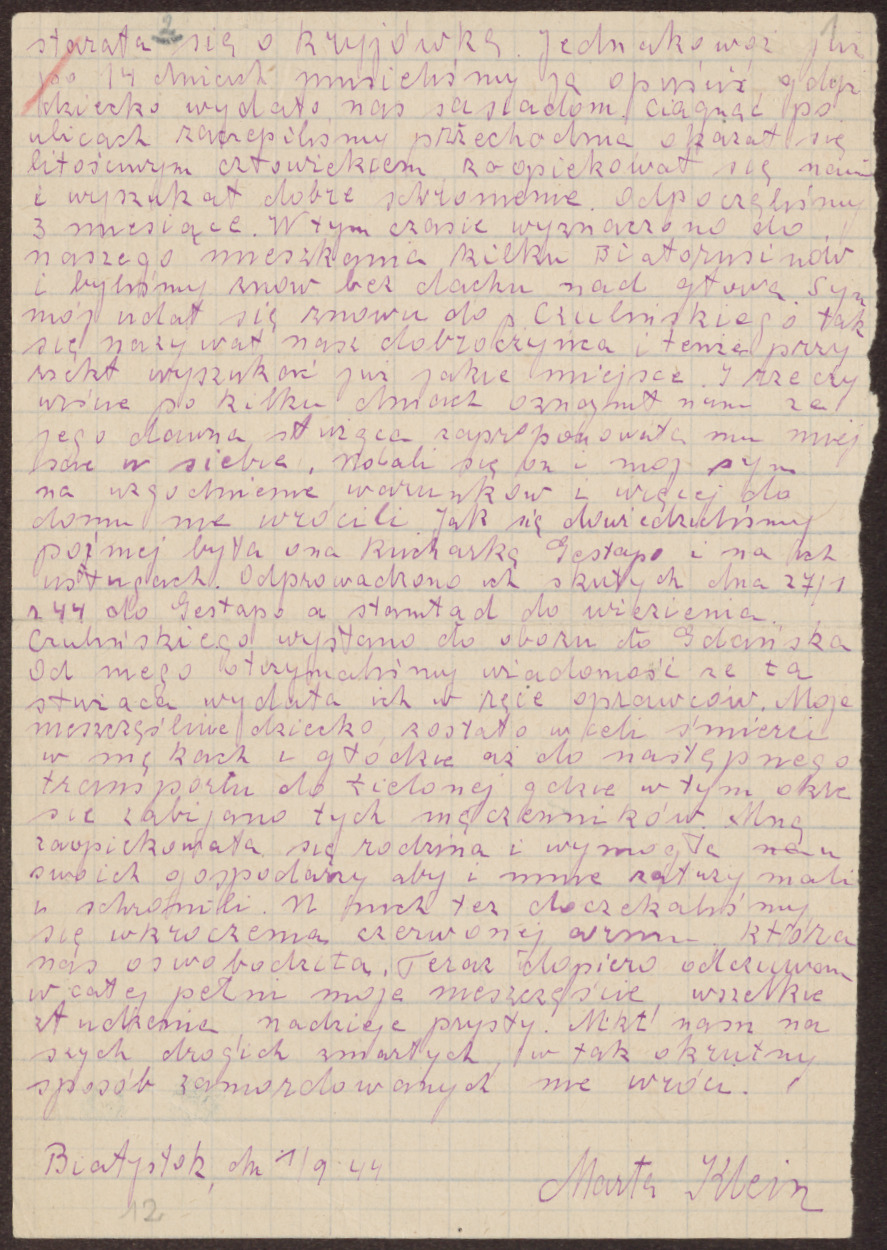 2 1
starała się o kryjówkę. Jednakowoż już
po 14 dniach musieliśmy ją opuścić, gdyż
dziecko wydało nas sąsiadom. Ciągnąc po
ulicach zaczepiliśmy przechodnia okazał się
litościwym człowiekiem zaopiekował się nami
i wyszukał dobre schronienie. Odpoczęliśmy
3 miesiące. W tym czasie wyznaczono do
naszego mieszkania kilku Białorusinów
i byliśmy znów bez dachu nad głową. Syn
mój udał się znowu do p. Czulińskiego tak
się nazywał nasz dobroczyńca i tenże przy
rzekł wyszukać już jakie miejsce. I rzeczy
wiście po kilku dniach oznajmił nam że
jego dawna służąca zaproponowała mu miej
sce u siebie. Udali się on i mój syn
na uzgodnienie warunków i więcej do
domu nie wrócili. Jak się dowiedzieliśmy
później była ona kucharką Gestapo i na ich
usługach. Odprowadzono ich skutych dnia 27/1
r 44 do Gestapo a stamtąd do więzienia.
Czulińskiego wysłano do obozu do Gdańska
Od niego otrzymaliśmy wiadomość że ta
służąca wydała ich w ręce oprawców. Moje
nieszczęśliwe dziecko, zostało w celi śmierci
w mękach i głodzie aż do następnego
transportu do Zielonej gdzie w tym okre
sie zabijano tych męczenników. Mną
zaopiekowała się rodzina i wymogła na
swoich gospodarzy aby i mnie zatrzymali
i schronili. U nich też doczekaliśmy
się wkroczenia czerwonej armii, która
nas oswobodziła. Teraz dopiero odczuwam
w całej pełni moje nieszczęście, wszelkie
złudzenie nadzieje prysły. Nikt nam na
szych drogich zmarłych, w tak okrutny
sposób zamordowanych nie wróci.
Białystok, dn 1/9 44
Marta Klein
12